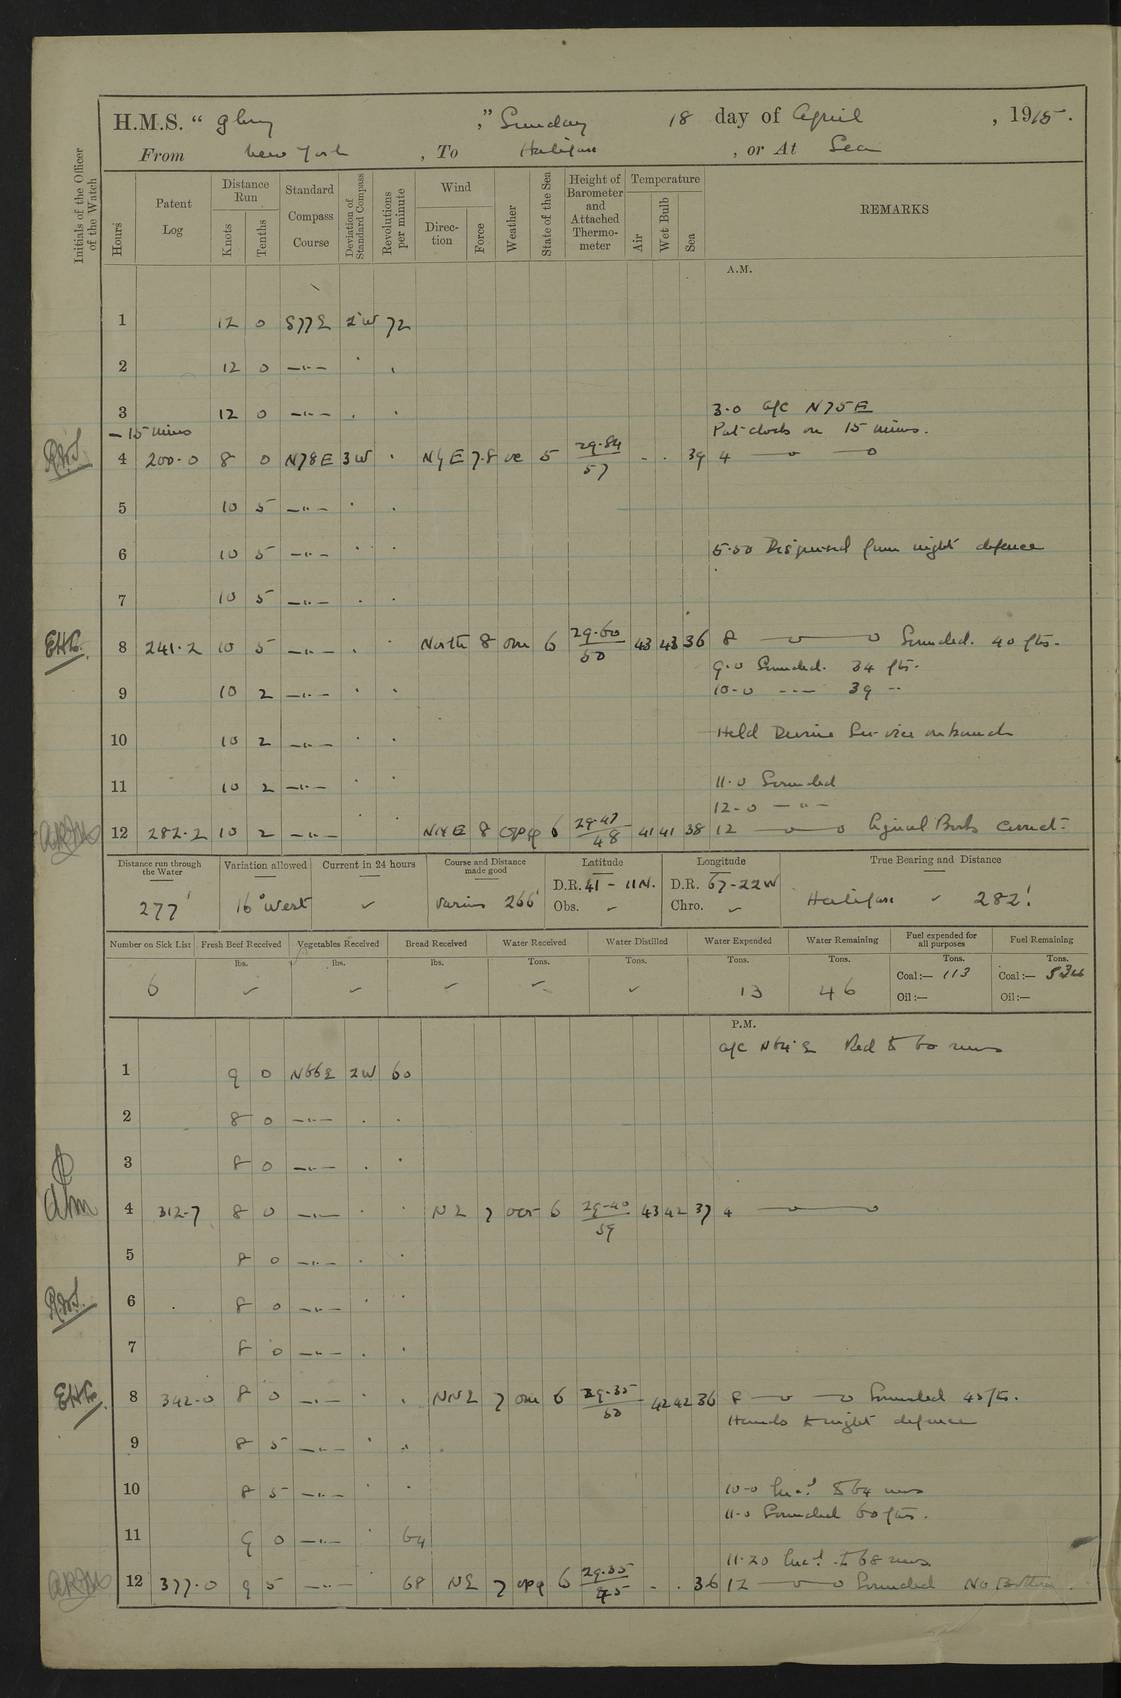 H.M.S. "Glory," Sunday 18 day of April, 1915.
From New York, To Halifax, or At Sea
Initials of the Officer of the Watch
Hours Patent Log Distance Run Knots Tenths Standard Compass Course Deviation of Standard Compass Revolutions per minute Wind Direction Force Weather State of the Sea Height of Barometer and Attached Thermometer Temperature Air Wet Bulb Sea REMARKS
A.M.
1 12 0 S77E 2°W 72
2 12 0 —"— " "
3 12 0 —"— " " 3.0 a/c N75E
— 15 mins Put clocks on 15 mins.
4 200.0 8 0 N78E 3W " NyE 7.8 oc 5 29.84/57 - - 39 4
5 10 5 —"— " "
6 10 5 —"— " " 5.50 Dispersed from night defence
7 10 5 —"— " "
8 241.2 10 5 —"— " " North 8 om 6 29.60/50 43 43 36 8 Sounded. 40 fts.
9.0 Sounded. 34 fts.
9 10 2 —"— " " 10.0 --- 39 --
10 10 2 —"— " " Held Divine Service on board
11 10 2 —"— " " 11.0 Sounded
12.0 —"—
12 282.2 10 2 —"— 8 6 29.47/48 41 41 38 12
Distance run through the Water Variation allowed Current in 24 hours Course and Distance made good Latitude Longitude True Bearing and Distance
277' 16° West ✓ Various 266' D.R. 41 - 11N. D.R. 67-22W Halifax ✓ 282'
Obs. ✓ Chro. ✓
Number on Sick List Fresh Beef Received Vegetables Received Bread Received Water Received Water Distilled Water Expended Water Remaining Fuel expended for all purposes Fuel Remaining
lbs. lbs. lbs. Tons. Tons. Tons. Tons. Tons. Tons.
6 ✓ ✓ ✓ ✓ ✓ 13 46 Coal:— 113 Coal:—
Oil:— Oil:—
P.M.
a/c N64E Red to 60 revs
1 9 0 N66E 2W 60
2 8 0 —"— " "
3 8 0 —"— " "
4 312.7 8 0 —"— " " NE 7 6 29.40/59 43 42 37 4
5 8 0 —"— " "
6 8 0 —"— " "
7 8 0 —"— " "
8 342.0 8 0 —"— " " NNE 7 om 6 29.35/50 42 42 36 8 Sounded 45 fts.
Hands to night defence
9 8 5 —"— " "
10 8 5 —"— " " 10.0 Inc.d to 64 revs
11.0 Sounded 60 fts.
11 9 0 —"— " 64
11.20 Inc.d to 68 revs
12 377.0 9 5 —"— " 68 NE 7 opq 6 29.35/45 - - 36 12 Sounded No Bottom.